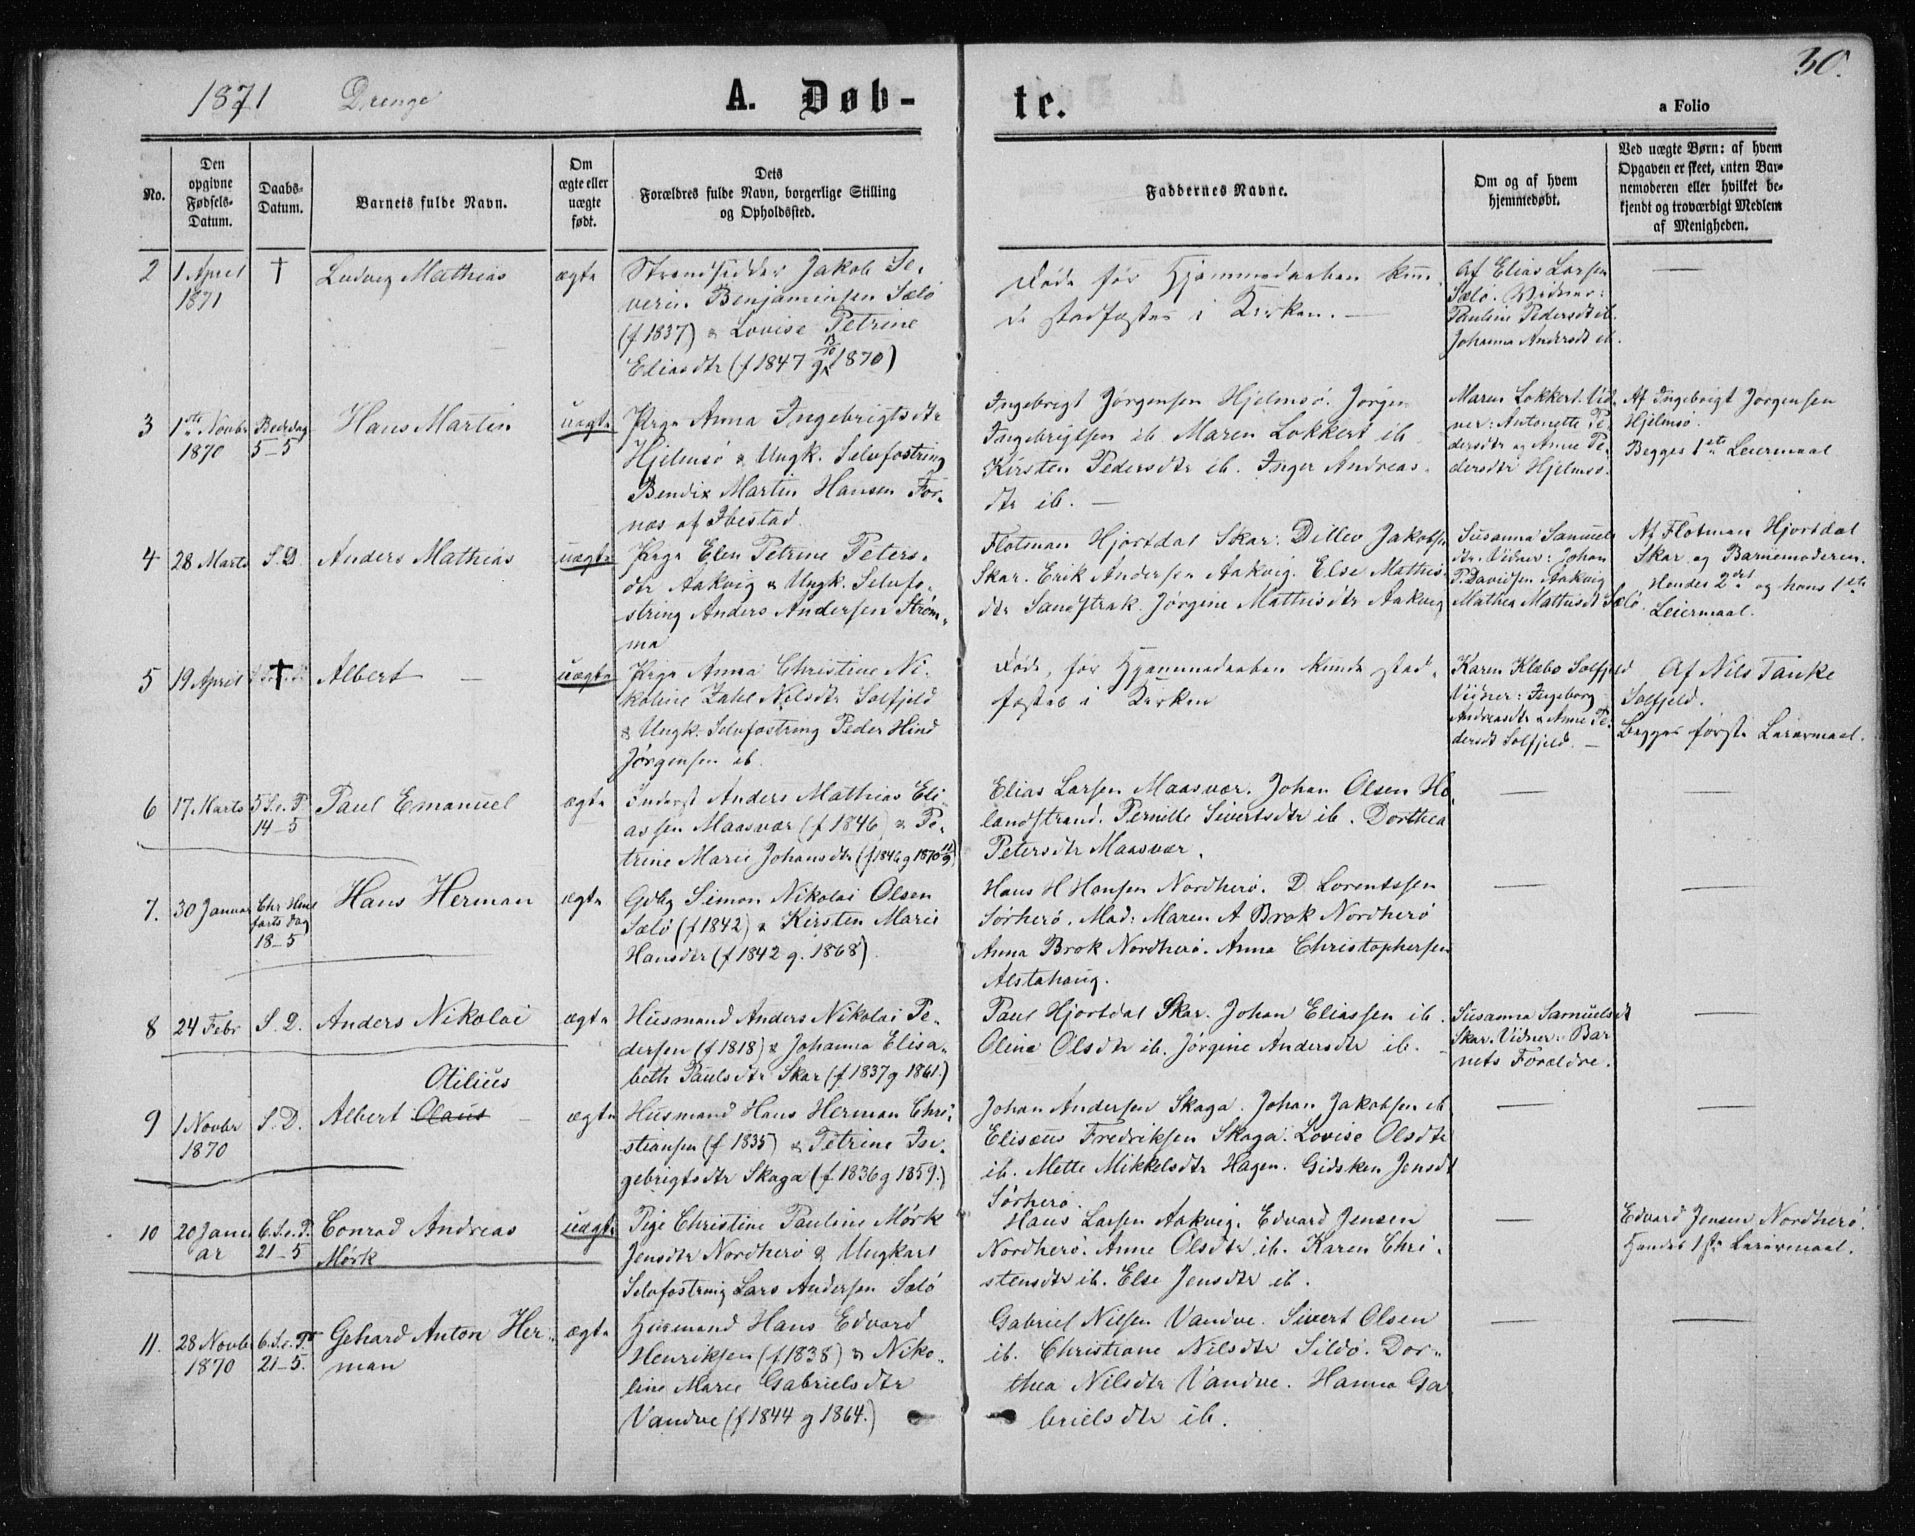 1871 Drenge A. Døb-te. 30.
a Folio
No.
Den opgivne Fødsels-Datum.
Daabs-Datum.
Barnets fulde Navn.
Om ægte eller uægte født.
Dets Forældres fulde Navn, borgerlige Stilling og Opholdssted.
Faddernes Navne.
Om og af hvem hjemmedøbt.
Ved uægte Børn: af hvem Opgaven er skeet, enten Barnemoderen eller hvilket bekjendt og troværdigt Medlem af Menigheden.
2
1 April
1871
†
Ludvig Mathias
ægte
Strandsidder Jakob Se-
verin Benjaminsen Sælö
(f 1837) & Lovise Petrine
Eliasdtr (f 1847 g 13/10 1870)
Döde för Hjemmedaaben kun-
de stadfæstes i Kirken. —
Af Elias Larsen
Sælö. Vidner:
Pauline Pedersdt ib.
Johanna Andersdt ib.
—
3
1ste Novbr
1870
Bededag
5–5
Hans Martin
uægte
Pige Anna Ingebrigtsdtr
Hjelmsö & Ungk. Selvfostring
Bendix Martin Hansen For-
næs af Ibestad.
Ingebrigt Jørgensen Hjelmsö. Jørgen
Ingebrigtsen ib. Maren Lokkert ib
Kirsten Pedersdtr ib. Inger Andreas-
dtr ib. —
Maren Lokkert. Vid-
ner: Antonette Pe-
dersdtr og Anne Pe-
dersdtr Hjelmsö.
Af Ingebrigt Jørgensen
Hjelmsö.
Begges 1ste Leiermaal
4
28 Marts
S. D.
Anders Mathias
uægte
Pige Elen Petrine Peters-
dtr Aakvig & Ungk. Selvfo-
string Anders Andersen Ström-
ma
Flotman Hjortdal Skar. Ditlev Jakobsen
Skar. Erik Andersen Aakvig. Else Mathis-
dtr Sandstrak. Jørgine Mathisdtr Aakvig
Susanna Samuels
dtr. Vidner: Johan
P. Davidsen Aakvig
Mathea Mathisdt Sælö
Af Flotman Hjortdal
Skar og Barnemoderen.
Hendes 2det og hans 1ste
Leiermaal.
5
19 April
†
Albert —
uægte
Pige Anna Christine Ni-
koline Zahl Nilsdtr Solfjeld
& Ungk. Selvfostring Peder Hind
Jørgensen ib.
Döde, för Hjemmedaaben kunde stad-
fæstes i Kirken
Karen Klæbo Solfjeld
Vidner: Ingeborg
Andreasdtr & Anne Pe-
dersdt Solfjeld. —
Af Nils Tanke
Solfjeld.
Begges förste Leiermaal.
6
17. Marts
5 S. e. P.
14–5
Paul Emanuel
ægte
Inderst Anders Mathias Eli-
assen Maasvær (f 1846) & Pe-
trine Marie Johansdtr (f 1846 g 1870)
Elias Larsen Maasvær. Johan Olsen He-
landstrand. Pernille Sivertsdtr ib. Dorthea
Petersdtr Maasvær.
—
—
7.
30 Januar
Chr. Him
farts Dag
18–5
Hans Herman
ægte
Gdbr Simon Nikolai Olsen
Sælö (f 1842) & Kirsten Marie
Hansdtr (f 1842 g. 1868)
Hans H Hansen Nordherö. D. Lorentssen
Sørherö. Mad: Maren A Brok Nordherö
Anna Brok Nordherö. Anna Christophersen
Alstahaug.
—
—
8
24 Febr
S. D.
Anders Nikolai
ægte
Husmand Anders Nikolai Pe-
dersen (f 1818) & Johanna Elisa-
beth Paulsdtr Skar (f 1837 g 1861.)
Paul Hjortdal Skar. Johan Eliassen ib.
Oline Olsdtr ib. Jørgine Andersdtr ib.
Susanna Samuelsdt
Skar. Vidner: Bar
nets Forældre.
—
9
1 Novbr
1870
S. D.
Otilius
Albert Olaus —
ægte
Husmand Hans Herman Chri-
stiansen (f 1835) & Petrine In-
gebrigtsdtr Skaga (f 1836 g 1859.)
Johan Andersen Skaga. Johan Jakobsen ib
Elisæus Fredriksen Skaga. Lovise Olsdtr
ib. Mette Mikkelsdtr Hagen. Gidsken Jensdt
Sørherö.
—
—
10
20 Janu
ar
6. S. e. P.
21–5
Conrad Andreas
Mörk
uægte
Pige Christine Pauline Mörk
Jensdtr Nordherö & Ungkarl
Selvfostring Lars Andersen Sælö
Hans Larsen Aakvig. Edvard Jensen
Nordherö. Anne Olsdtr ib. Karen Chri-
stensdtr ib. Else Jensdtr ib.
—
Edvard Jensen Nordherö.
Hendes 1ste Leiermaal.
11.
28 Novbr
1870
6. S. e. P.
21–5.
Gehard Anton Her-
man
ægte
Husmand Hans Edvard
Henriksen (f 1838) & Niko-
line Marie Gabrielsdtr
Vandve (f 1844 g 1864.)
Gabriel Nilsen Vandve. Sivert Olsen
ib. Christiane Nilsdtr Sildö. Dor-
thea Nilsdtr Vandve. Hanna Ga
brielsdtr ib.
—
—